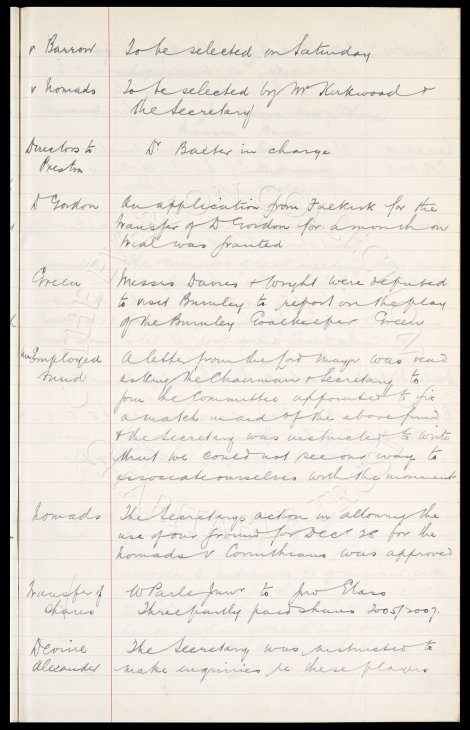 v Barrow To be selected on Saturday
v Nomads To be selected by Mr Kirkwood &
the Secretary
Directors to Dr Baxter in charge
Preston
D Gordon An application from Falkirk for the
transfer of D Gordon for a month on
trial was granted
Green Messrs Davies & Wright were deputed
to visit Burnley to report on the play
of the Burnley Goalkeeper Green
Unemployed A letter from the Lord Mayor was read
Fund asking the Chairman & Secretary to
join the Committee appointed to fix
a match in aid of the above fund
& the Secretary was instructed to write
that we could not see our way to
associate ourselves with the movement
Nomads The Secretarys action in allowing the
use of our ground for Decr 28 for the
Nomads v Corinthians was approved
Transfer of W Parle Junr to Jno
Shares Three partly paid shares 2005/2007.
Devine The Secretary was instructed to
Alexander make enquiries re these players